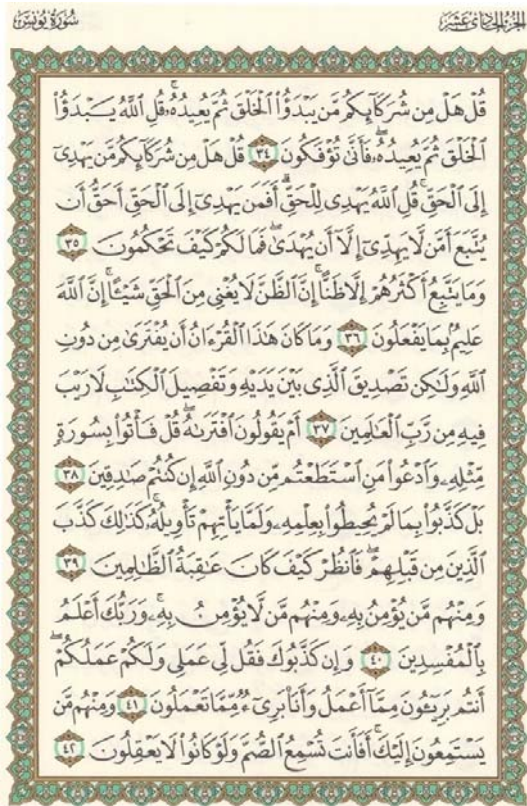 الجزء الحادي عشر
سورة يونس
قُلْ هَلْ مِن شُرَكَآئِكُم مَّن يَبْدَؤُا۟ ٱلْخَلْقَ ثُمَّ يُعِيدُهُۥ ۚ قُلِ ٱللَّهُ يَبْدَؤُا۟
ٱلْخَلْقَ ثُمَّ يُعِيدُهُۥ ۖ فَأَنَّىٰ تُؤْفَكُونَ ٣٤ قُلْ هَلْ مِن شُرَكَآئِكُم مَّن يَهْدِىٓ
إِلَى ٱلْحَقِّ ۚ قُلِ ٱللَّهُ يَهْدِى لِلْحَقِّ ۗ أَفَمَن يَهْدِىٓ إِلَى ٱلْحَقِّ أَحَقُّ أَن
يُتَّبَعَ أَمَّن لَّا يَهِدِّىٓ إِلَّآ أَن يُهْدَىٰ ۖ فَمَا لَكُمْ كَيْفَ تَحْكُمُونَ ٣٥
وَمَا يَتَّبِعُ أَكْثَرُهُمْ إِلَّا ظَنًّا ۚ إِنَّ ٱلظَّنَّ لَا يُغْنِى مِنَ ٱلْحَقِّ شَيْـًٔا ۚ إِنَّ ٱللَّهَ
عَلِيمٌۢ بِمَا يَفْعَلُونَ ٣٦ وَمَا كَانَ هَٰذَا ٱلْقُرْءَانُ أَن يُفْتَرَىٰ مِن دُونِ
ٱللَّهِ وَلَٰكِن تَصْدِيقَ ٱلَّذِى بَيْنَ يَدَيْهِ وَتَفْصِيلَ ٱلْكِتَٰبِ لَا رَيْبَ
فِيهِ مِن رَّبِّ ٱلْعَٰلَمِينَ ٣٧ أَمْ يَقُولُونَ ٱفْتَرَىٰهُ ۖ قُلْ فَأْتُوا۟ بِسُورَةٍ
مِّثْلِهِۦ وَٱدْعُوا۟ مَنِ ٱسْتَطَعْتُم مِّن دُونِ ٱللَّهِ إِن كُنتُمْ صَٰدِقِينَ ٣٨
بَلْ كَذَّبُوا۟ بِمَا لَمْ يُحِيطُوا۟ بِعِلْمِهِۦ وَلَمَّا يَأْتِهِمْ تَأْوِيلُهُۥ ۚ كَذَٰلِكَ كَذَّبَ
ٱلَّذِينَ مِن قَبْلِهِمْ ۖ فَٱنظُرْ كَيْفَ كَانَ عَٰقِبَةُ ٱلظَّٰلِمِينَ ٣٩
وَمِنْهُم مَّن يُؤْمِنُ بِهِۦ وَمِنْهُم مَّن لَّا يُؤْمِنُ بِهِۦ ۚ وَرَبُّكَ أَعْلَمُ
بِٱلْمُفْسِدِينَ ٤٠ وَإِن كَذَّبُوكَ فَقُل لِّى عَمَلِى وَلَكُمْ عَمَلُكُمْ ۖ
أَنتُم بَرِيٓـُٔونَ مِمَّآ أَعْمَلُ وَأَنَا۠ بَرِىٓءٌ مِّمَّا تَعْمَلُونَ ٤١ وَمِنْهُم مَّن
يَسْتَمِعُونَ إِلَيْكَ ۚ أَفَأَنتَ تُسْمِعُ ٱلصُّمَّ وَلَوْ كَانُوا۟ لَا يَعْقِلُونَ ٤٢